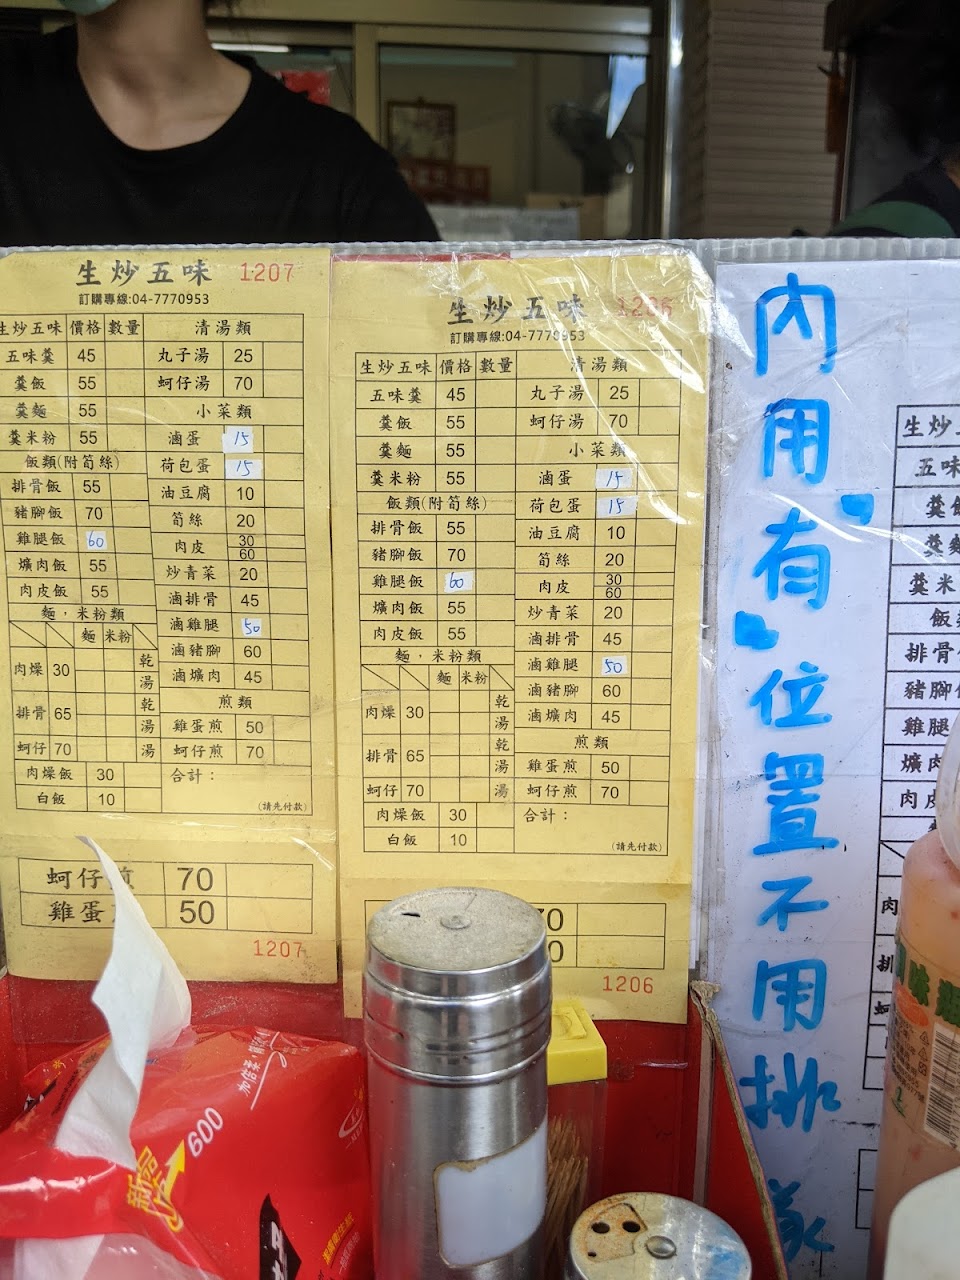 生炒五味 1207
訂購專線:04-7770953
生炒五味 價格 數量 清湯類
五味羹 45 丸子湯 25
羹飯 55 蚵仔湯 70
羹麵 55 小菜類
羹米粉 55 滷蛋 15
飯類(附筍絲) 荷包蛋 15
排骨飯 55 油豆腐 10
豬腳飯 70 筍絲 20
雞腿飯 60 肉皮 30 60
爌肉飯 55 炒青菜 20
肉皮飯 55 滷排骨 45
麵,米粉類 滷雞腿 50
麵 米粉 滷豬腳 60
肉燥 30 乾 湯 滷爌肉 45
排骨 65 乾 湯 煎類
雞蛋煎 50
蚵仔 70 湯 蚵仔煎 70
肉燥飯 30 合計:
白飯 10 (請先付款)
蚵仔煎 70
雞蛋 50
1207
生炒五味 1206
訂購專線:04-7770953
生炒五味 價格 數量 清湯類
五味羹 45 丸子湯 25
羹飯 55 蚵仔湯 70
羹麵 55 小菜類
羹米粉 55 滷蛋 15
飯類(附筍絲) 荷包蛋 15
排骨飯 55 油豆腐 10
豬腳飯 70 筍絲 20
雞腿飯 60 肉皮 30 60
爌肉飯 55 炒青菜 20
肉皮飯 55 滷排骨 45
麵,米粉類 滷雞腿 50
麵 米粉 滷豬腳 60
肉燥 30 乾 湯 滷爌肉 45
排骨 65 乾 湯 煎類
雞蛋煎 50
蚵仔 70 湯 蚵仔煎 70
肉燥飯 30 合計:
白飯 10 (請先付款)
70
0
1206
內用"有"位置不用排隊
生炒
五味
羹
羹
羹米
飯
排骨
豬腳
雞腿
爌肉
肉皮
肉
排
蚵
加倍柔
600
新品